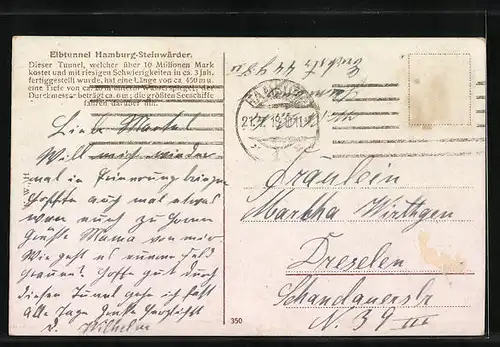 Elbtunnel Hamburg-Steinwärder.
Dieser Tunnel, welcher über 10 Millionen Mark
kostet und mit riesigen Schwierigkeiten in ca. 3 Jah.
fertiggestellt wurde, hat eine Länge von ca. 450 m u.
eine Tiefe von unter Wasserspiegel, der
Durchmesser beträgt ca. 6 m; die größten Seeschiffe
fahren darüber hin.
Lieb Martel
Will mich wieder
mal in Erinnerung bringen
hoffte auch mal etwas
von euch zu hören
Grüße Mama von mir
Wie geht es
Hoffe gut durch
diesen Tunnel gehe ich fast
alle Tage
d. Wilhelm
HAMBURG
Fräulein
Martha Wirthgen
Dresden
Schandauerstr
N. 39 III
350